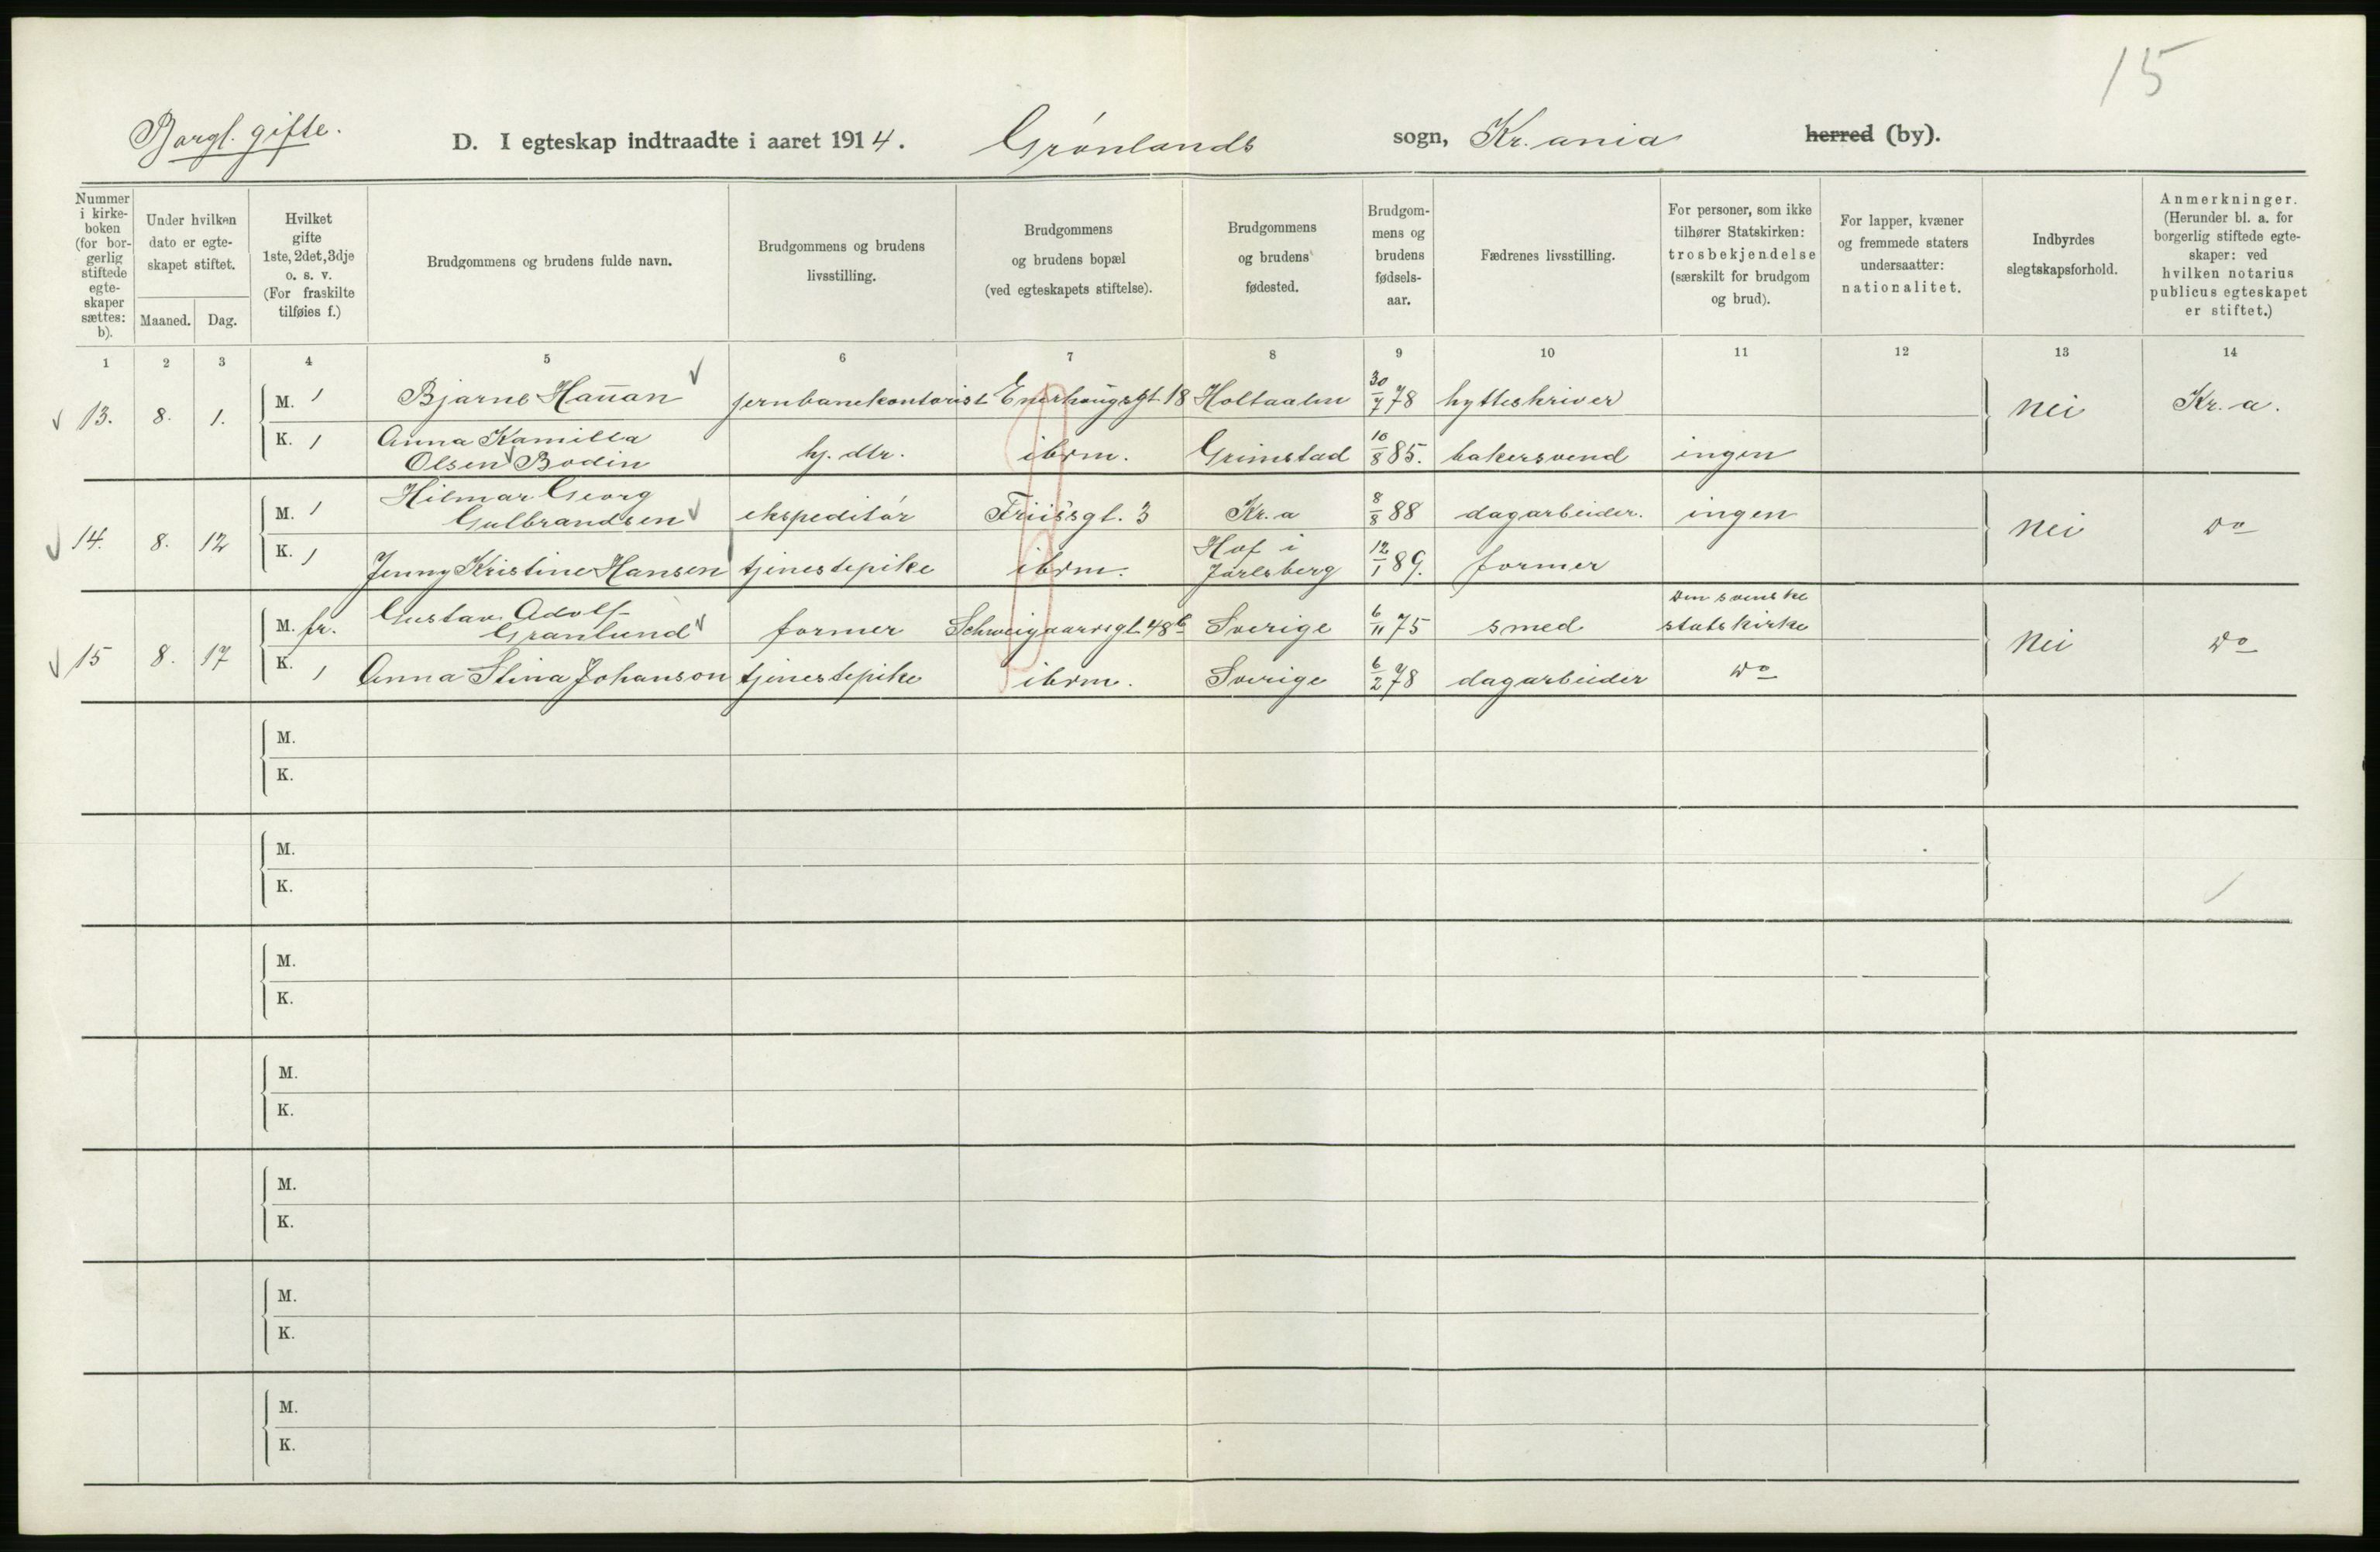 15
Borgl. gifte.
D. I egteskap indtraadte i aaret 1914. Grønlands sogn, Kr.ania herred (by).
Nummer i kirkeboken (for borgerlig stiftede egteskaper sættes: b).
Under hvilken dato er egteskapet stiftet.
Maaned. Dag.
Hvilket gifte 1ste, 2det, 3dje o. s. v. (For fraskilte tilføies f.)
Brudgommens og brudens fulde navn.
Brudgommens og brudens livsstilling.
Brudgommens og brudens bopæl (ved egteskapets stiftelse).
Brudgommens og brudens fødested.
Brudgommens og brudens fødselsaar.
Fædrenes livsstilling.
For personer, som ikke tilhører Statskirken: trosbekjendelse (særskilt for brudgom og brud).
For lapper, kvæner og fremmede staters undersaatter: nationalitet.
Indbyrdes slegtskapsforhold.
Anmerkninger. (Herunder bl. a. for borgerlig stiftede egteskaper: ved hvilken notarius publicus egteskapet er stiftet.)
1 2 3 4 5 6 7 8 9 10 11 12 13 14
13. 8. 1. M. 1 Bjarne Hauan jernbanekontorist Enerhaugsgt 18 Holtaalen 30/7 78 hytteskriver nei Kr. a.
K. 1 Anna Kamilla Olsen Bodin hj. dtr. ibdm. Grimstad 10/8 85. bakersvend ingen
14. 8. 12 M. 1 Hilmar Georg Gulbrandsen ekspeditør Friisgt. 3 Kr. a 8/8 88 dagarbeider. ingen Nei do
K. 1 Jenny Kristine Hansen tjenestepike ibdm. Hof i Jarlsberg 12/1 89. former
15 8. 17 M. fr. Gustav Adolf Granlund former Schweigaardsgt. 48b Sverige 6/11 75 smed den svenske statskirke Nei do
K. 1 Anna Stina Johanson tjenestepike ibdm. Sverige 6/2 78 dagarbeider do
M.
K.
M.
K.
M.
K.
M.
K.
M.
K.
M.
K.
M.
K.